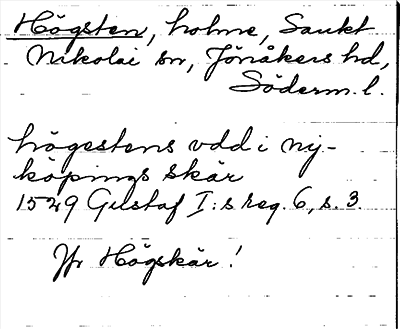 Högsten, holme, Sankt
Nikolai sn, Jönåkers hd,
Söderm. l.
högestens udd i ny-
köpings skär
1529 Gustaf I:s reg. 6, s. 3.
Jfr Högskär!